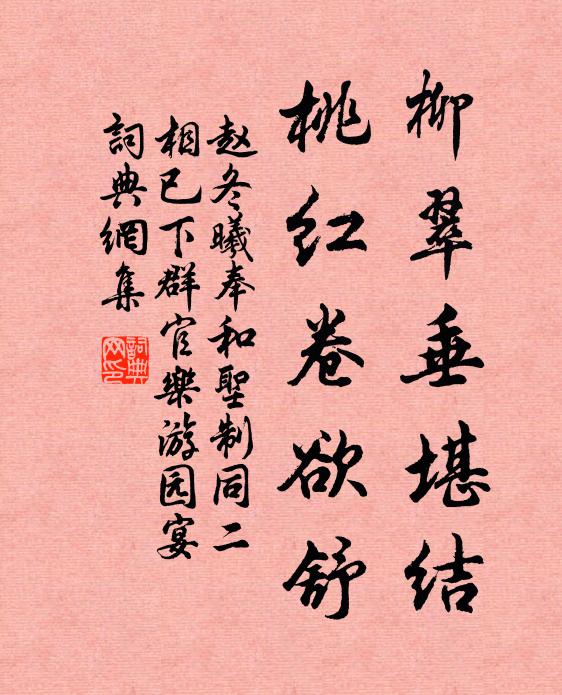 柳翠垂堪结
桃红卷欲舒
赵冬曦奉和聖制同二
相已下群官樂游园宴
詞典網集
詞典网印